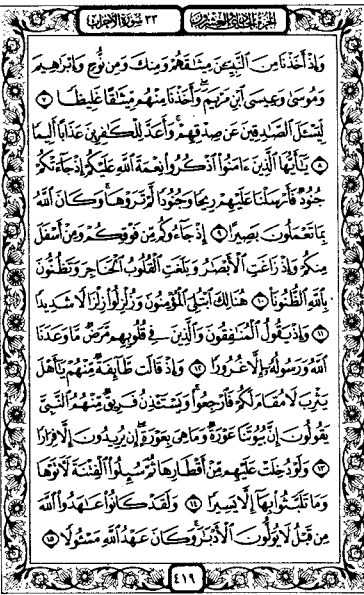 الجزء الحادي والعشرون
٣٣ سورة الأحزاب
وَإِذْ أَخَذْنَا مِنَ ٱلنَّبِيِّـۧنَ مِيثَـٰقَهُمْ وَمِنكَ وَمِن نُّوحٍ وَإِبْرَٰهِيمَ
وَمُوسَىٰ وَعِيسَى ٱبْنِ مَرْيَمَ ۖ وَأَخَذْنَا مِنْهُم مِّيثَـٰقًا غَلِيظًا ٧
لِّيَسْـَٔلَ ٱلصَّـٰدِقِينَ عَن صِدْقِهِمْ ۚ وَأَعَدَّ لِلْكَـٰفِرِينَ عَذَابًا أَلِيمًا
٨ يَـٰٓأَيُّهَا ٱلَّذِينَ ءَامَنُوا۟ ٱذْكُرُوا۟ نِعْمَةَ ٱللَّهِ عَلَيْكُمْ إِذْ جَآءَتْكُمْ
جُنُودٌ فَأَرْسَلْنَا عَلَيْهِمْ رِيحًا وَجُنُودًا لَّمْ تَرَوْهَا ۚ وَكَانَ ٱللَّهُ
بِمَا تَعْمَلُونَ بَصِيرًا ٩ إِذْ جَآءُوكُم مِّن فَوْقِكُمْ وَمِنْ أَسْفَلَ
مِنكُمْ وَإِذْ زَاغَتِ ٱلْأَبْصَـٰرُ وَبَلَغَتِ ٱلْقُلُوبُ ٱلْحَنَاجِرَ وَتَظُنُّونَ
بِٱللَّهِ ٱلظُّنُونَا۠ ١٠ هُنَالِكَ ٱبْتُلِىَ ٱلْمُؤْمِنُونَ وَزُلْزِلُوا۟ زِلْزَالًا شَدِيدًا
١١ وَإِذْ يَقُولُ ٱلْمُنَـٰفِقُونَ وَٱلَّذِينَ فِى قُلُوبِهِم مَّرَضٌ مَّا وَعَدَنَا
ٱللَّهُ وَرَسُولُهُۥٓ إِلَّا غُرُورًا ١٢ وَإِذْ قَالَت طَّآئِفَةٌ مِّنْهُمْ يَـٰٓأَهْلَ
يَثْرِبَ لَا مُقَامَ لَكُمْ فَٱرْجِعُوا۟ ۚ وَيَسْتَـْٔذِنُ فَرِيقٌ مِّنْهُمُ ٱلنَّبِىَّ
يَقُولُونَ إِنَّ بُيُوتَنَا عَوْرَةٌ وَمَا هِىَ بِعَوْرَةٍ ۖ إِن يُرِيدُونَ إِلَّا فِرَارًا
١٣ وَلَوْ دُخِلَتْ عَلَيْهِم مِّنْ أَقْطَارِهَا ثُمَّ سُئِلُوا۟ ٱلْفِتْنَةَ لَـَٔاتَوْهَا
وَمَا تَلَبَّثُوا۟ بِهَآ إِلَّا يَسِيرًا ١٤ وَلَقَدْ كَانُوا۟ عَـٰهَدُوا۟ ٱللَّهَ
مِن قَبْلُ لَا يُوَلُّونَ ٱلْأَدْبَـٰرَ ۚ وَكَانَ عَهْدُ ٱللَّهِ مَسْـُٔولًا ١٥
٤١٩